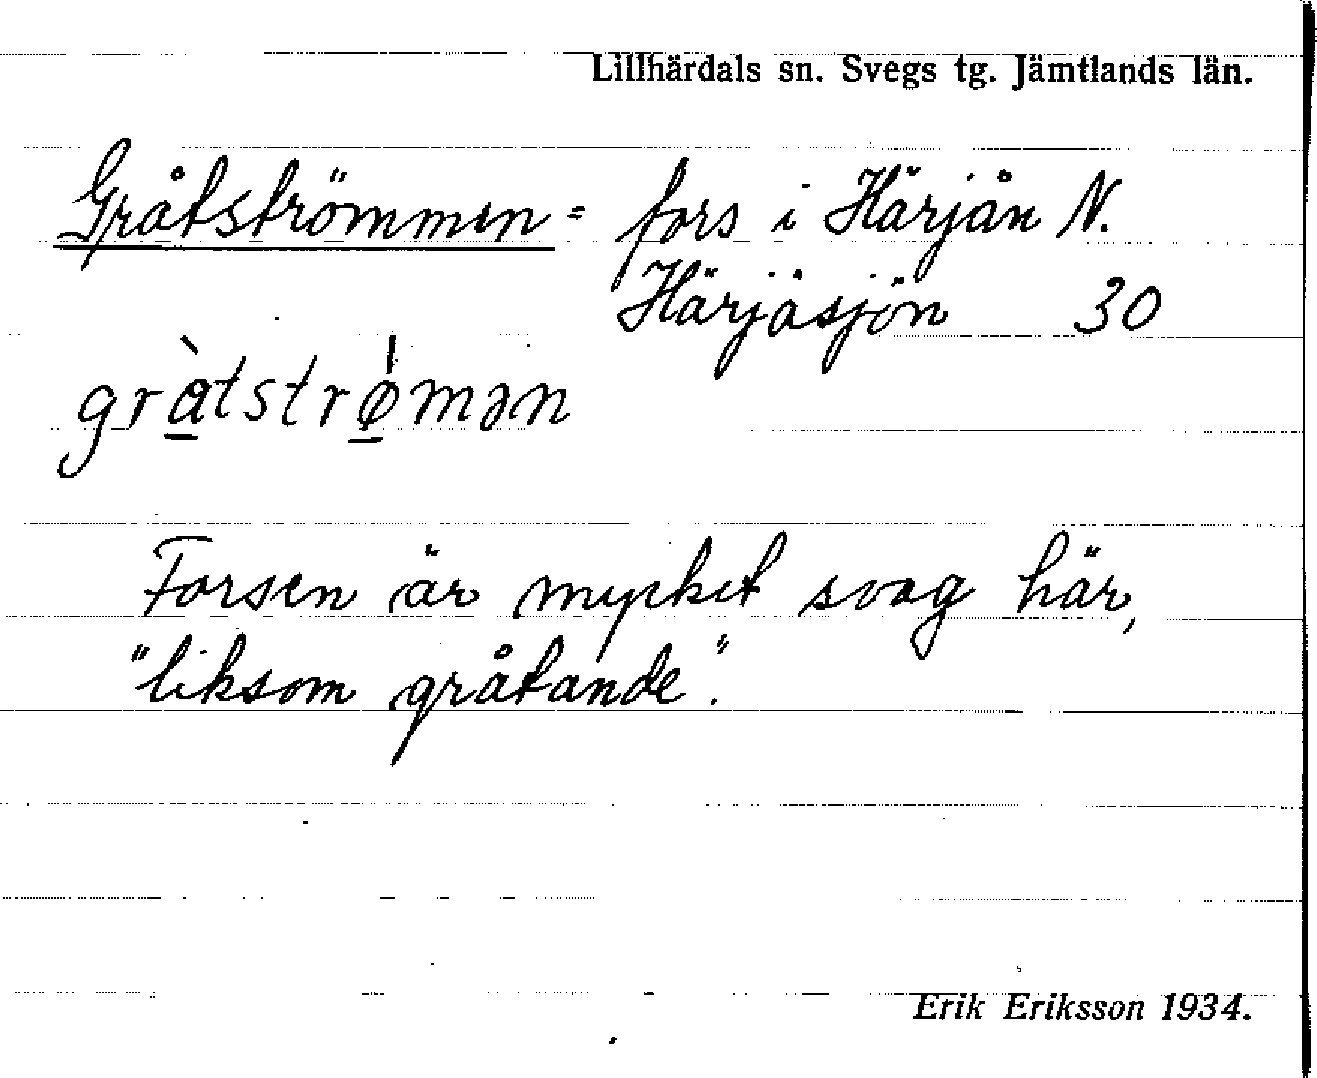 Lillhärdals sn. Svegs tg. Jämtlands län.
Gråtströmmen = fors i Härjån N.
Härjåsjön 30
grà̱tstrø̱̍mən
Forsen är mycket svag här,
"liksom gråtande".
Erik Eriksson 1934.